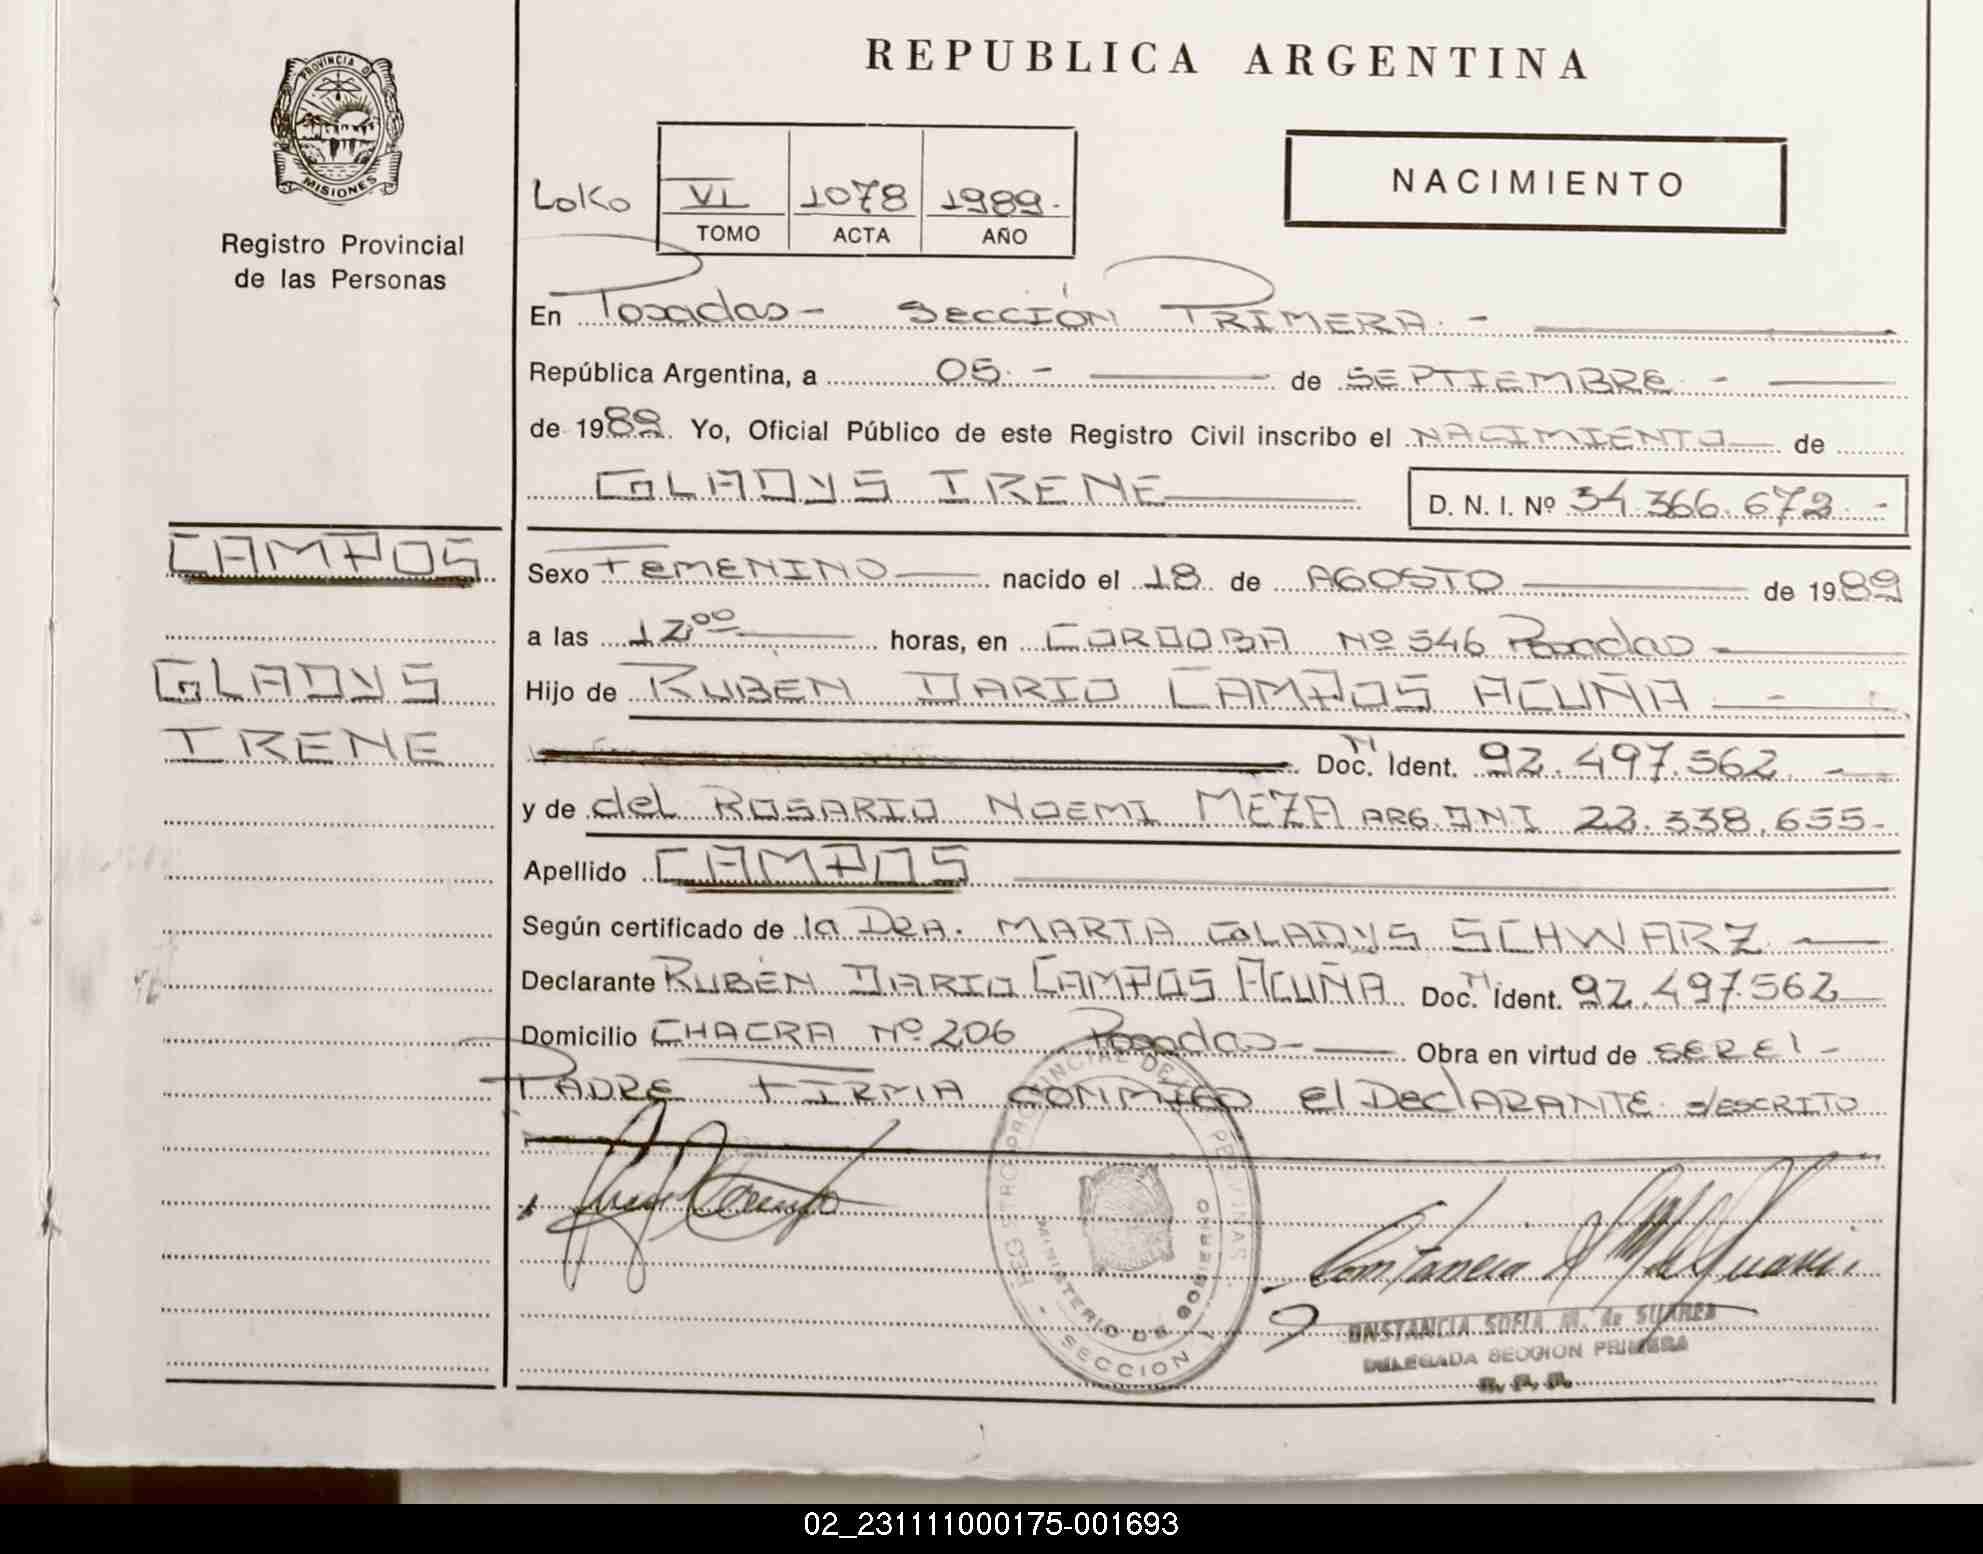 PROVINCIA DE
MISIONES
Registro Provincial
de las Personas
REPUBLICA ARGENTINA
NACIMIENTO
VI 1078 1989.
TOMO ACTA AÑO
En Posadas - SECCIÓN PRIMERA. -
República Argentina, a 05. - de SEPTIEMBRE. -
de 1989. Yo, Oficial Público de este Registro Civil inscribo el NACIMIENTO de
GLADYS IRENE D. N. I. Nº 34.366.672. -
CAMPOS
GLADYS
IRENE
Sexo FEMENINO nacido el 18 de AGOSTO de 1989
a las 12 00 horas, en CORDOBA Nº 546 Posadas
Hijo de RUBEN DARIO CAMPOS ACUÑA -
Doc. Ident. 92.497.562. -
y de del ROSARIO NOEMI MEZA ARG. DNI 23.338.655-
Apellido CAMPOS
Según certificado de la DRA. MARTA GLADYS SCHWARZ.
Declarante RUBÉN DARIO CAMPOS ACUÑA Doc. Ident. 92.497.562
Domicilio CHACRA Nº 206 Posadas - Obra en virtud de SER El -
PADRE FIRMA CONMIGO El DeclARANTE. s/ESCRITO
MINISTERIO DE GOBIERNO
SECCION 1
CONSTANCIA SOFIA M. de SUAREZ
DELEGADA SECCION PRIMERA
R. P. P.
02_231111000175-001693